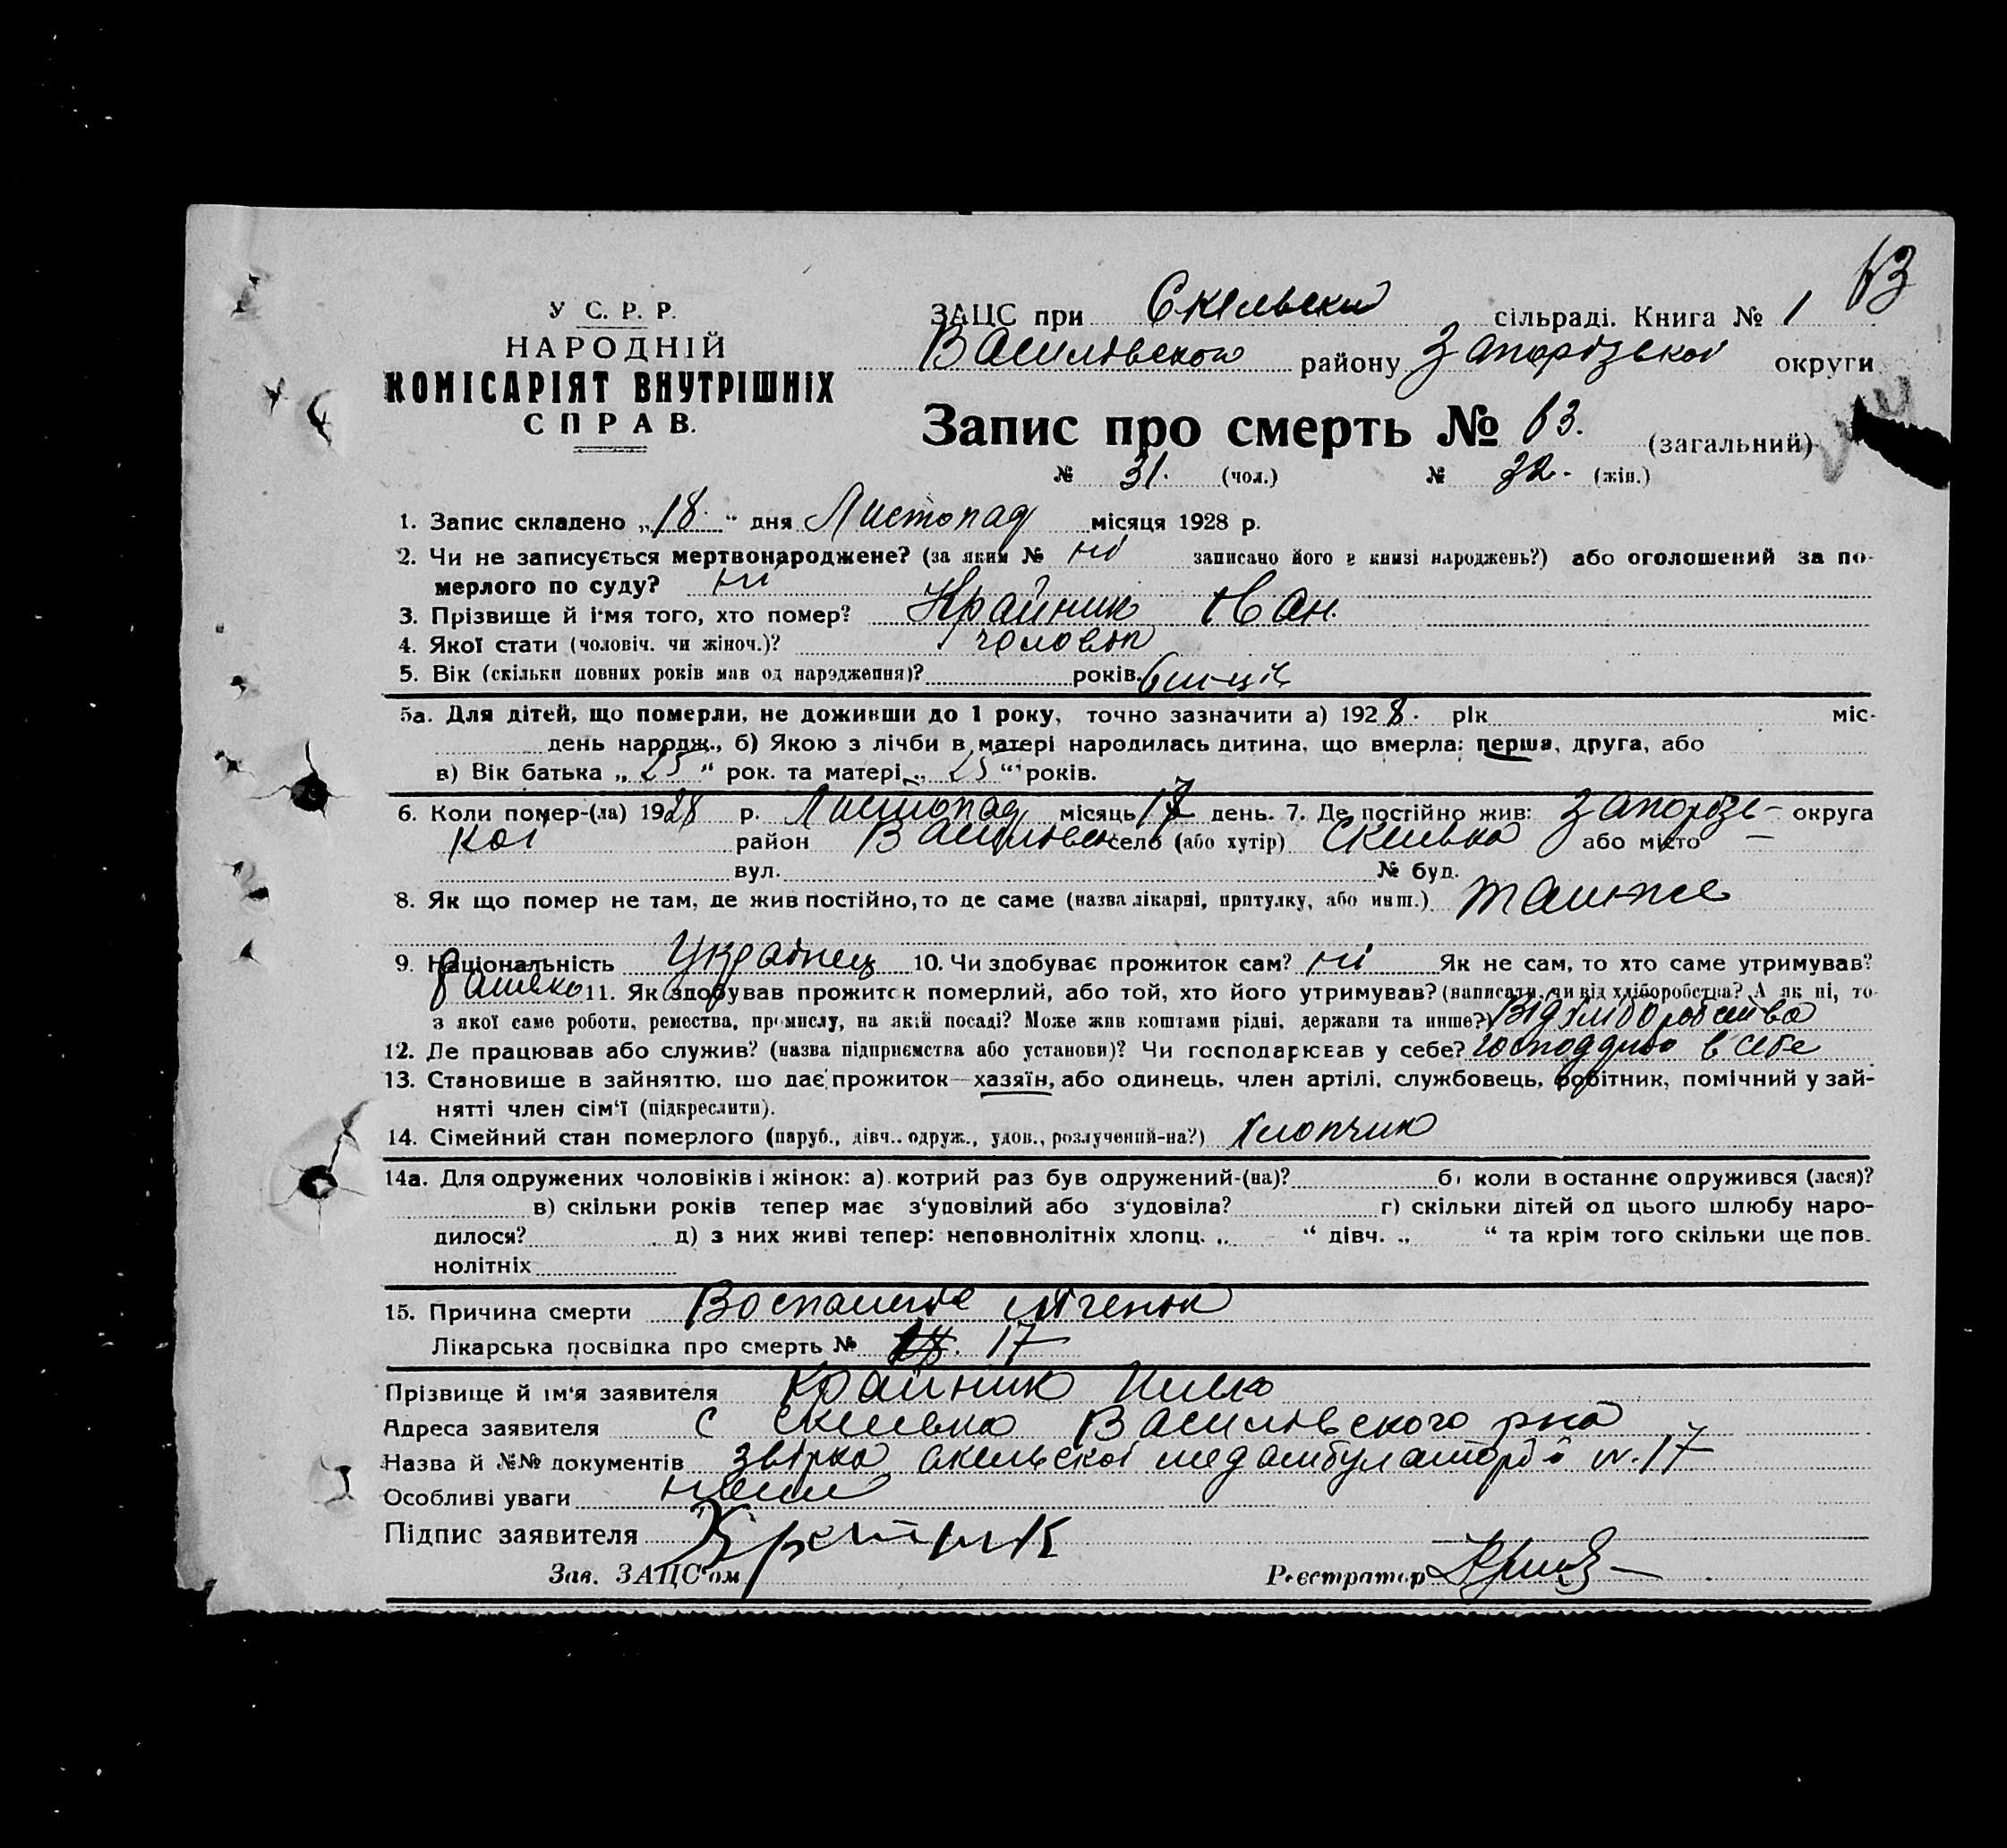 63
У С. Р. Р.
НАРОДНІЙ
КОМІСАРІЯТ ВНУТРІШНІХ
СПРАВ.
ЗАЦС при Скельски сільраді. Книга № 1
Василівской району Запорізькой округи
Запис про смерть № 63. (загальний)
№ 31. (чол.) № 32. (жін.)
1. Запис складено „18“ дня Листопад місяця 1928 р.
2. Чи не записується мертвонароджене? (за яким № ні записано його в книзі народжень?) або оголошений за по-
мерлого по суду? ні
3. Прізвище й ім‘я того, хто помер? Крайник Иван.
4. Якої стати (чоловіч. чи жіноч.)? чоловік
5. Вік (скільки повних років мав од народження)? років. 6
5а. Для дітей, що померли, не доживши до 1 року, точно зазначити а) 1928. рік міс.
день народж., б) Якою з лічби в матері народилась дитина, що вмерла: перша, друга, або
в) Вік батька „25“ рок. та матері „25“ років.
6. Коли помер-(ла) 1928 р. Листопад місяць 17 день. 7. Де постійно жив: Запорізь- округа
кої район Василівск село (або хутір) Скелька або місто —
вул. № буд.
8. Як що помер не там, де жив постійно, то де саме (назва лікарні, притулку, або инш.)
9. Національність Українец 10. Чи здобуває прожиток сам? ні Як не сам, то хто саме утримував?
батько 11. Як здобував прожиток померлий, або той, хто його утримував? (написати, чи від хліборобства? А як ні, то
з якої саме роботи, ремества, промислу, на якій посаді? Може жив коштами рідні, держави та инше?) Від хліборобства
12. Де працював або служив? (назва підприємства або установи)? Чи господарював у себе? в себе
13. Становище в зайняттю, що дає прожиток—хазяїн, або одинець, член артілі, службовець, робітник, помічний у зай-
нятті член сім‘ї (підкреслити).
14. Сімейний стан померлого (паруб., дівч., одруж., удов., розлучений-на?) хлопчик
14а. Для одружених чоловіків і жінок: а) котрий раз був одружений-(на)? б) коли в останнє одружився (лася)?
в) скільки років тепер має з‘удовілий або з‘удовіла? г) скільки дітей од цього шлюбу наро-
дилося? д) з них живі тепер: неповнолітніх хлопц. „ “ дівч. „ “ та крім того скільки ще пов.
нолітніх
15. Причина смерти Воспаление
Лікарська посвідка про смерть № 17
Прізвище й ім‘я заявителя Крайник
Адреса заявителя с Скелька Василівского рна
Назва й №№ документів Скельской медамбулаторії № 17
Особливі уваги
Підпис заявителя Крайник
Зав. ЗАЦС‘ом Реєстратор